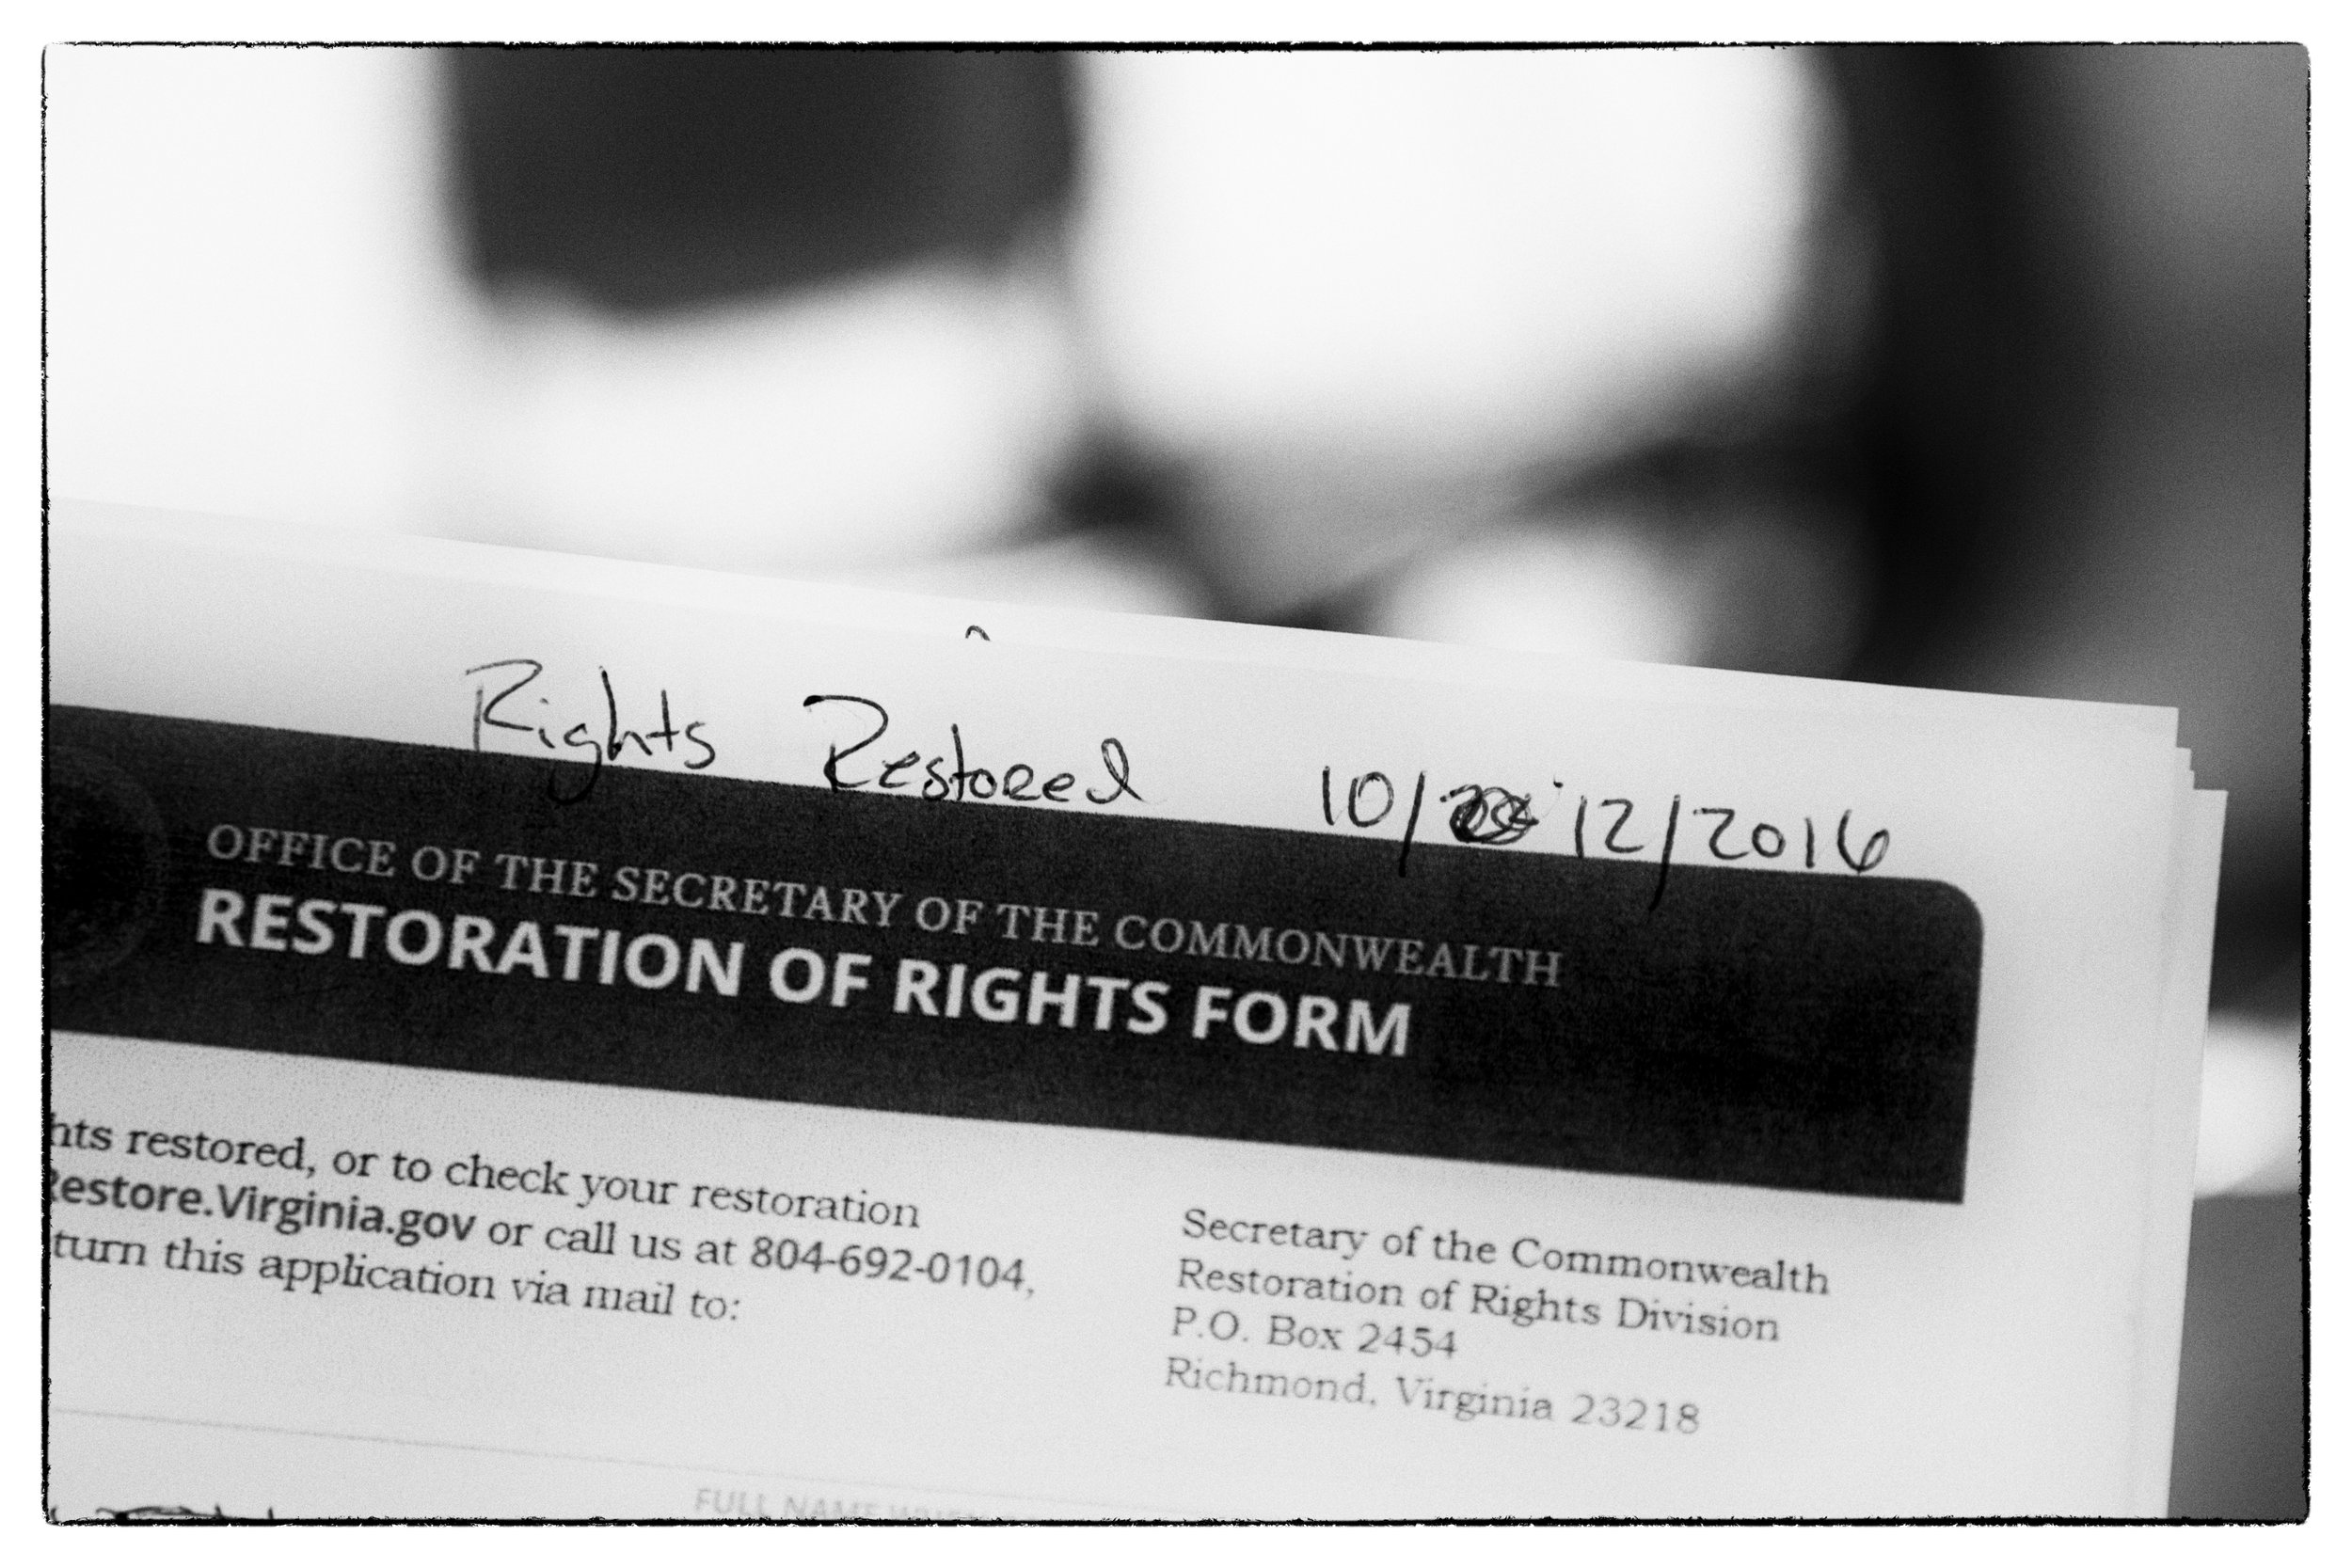 Rights Restored 10/12/2016
OFFICE OF THE SECRETARY OF THE COMMONWEALTH
RESTORATION OF RIGHTS FORM
hts restored, or to check your restoration
Restore.Virginia.gov or call us at 804-692-0104,
turn this application via mail to:
Secretary of the Commonwealth
Restoration of Rights Division
P.O. Box 2454
Richmond, Virginia 23218
FULL NAME